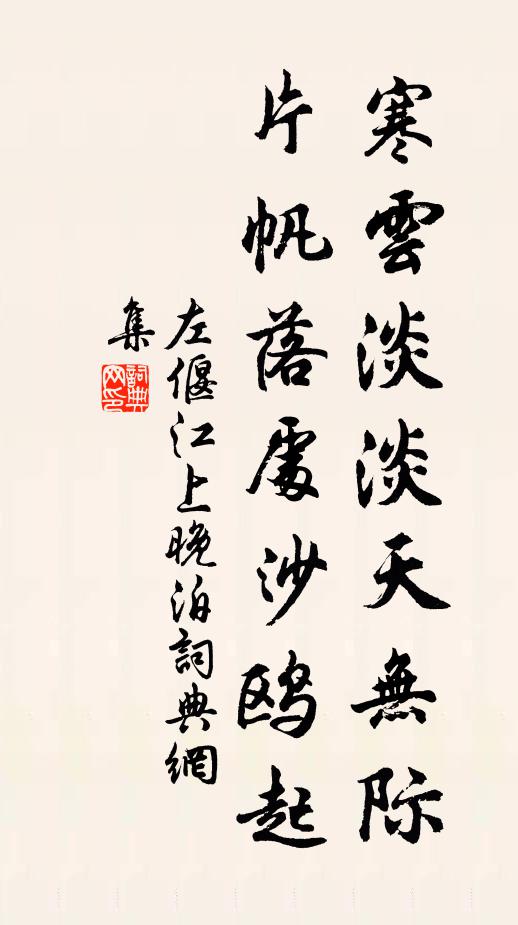 寒雲淡淡天無际
片帆落處沙鸥起
左偃江上晚泊詞典網
集
詞典网印